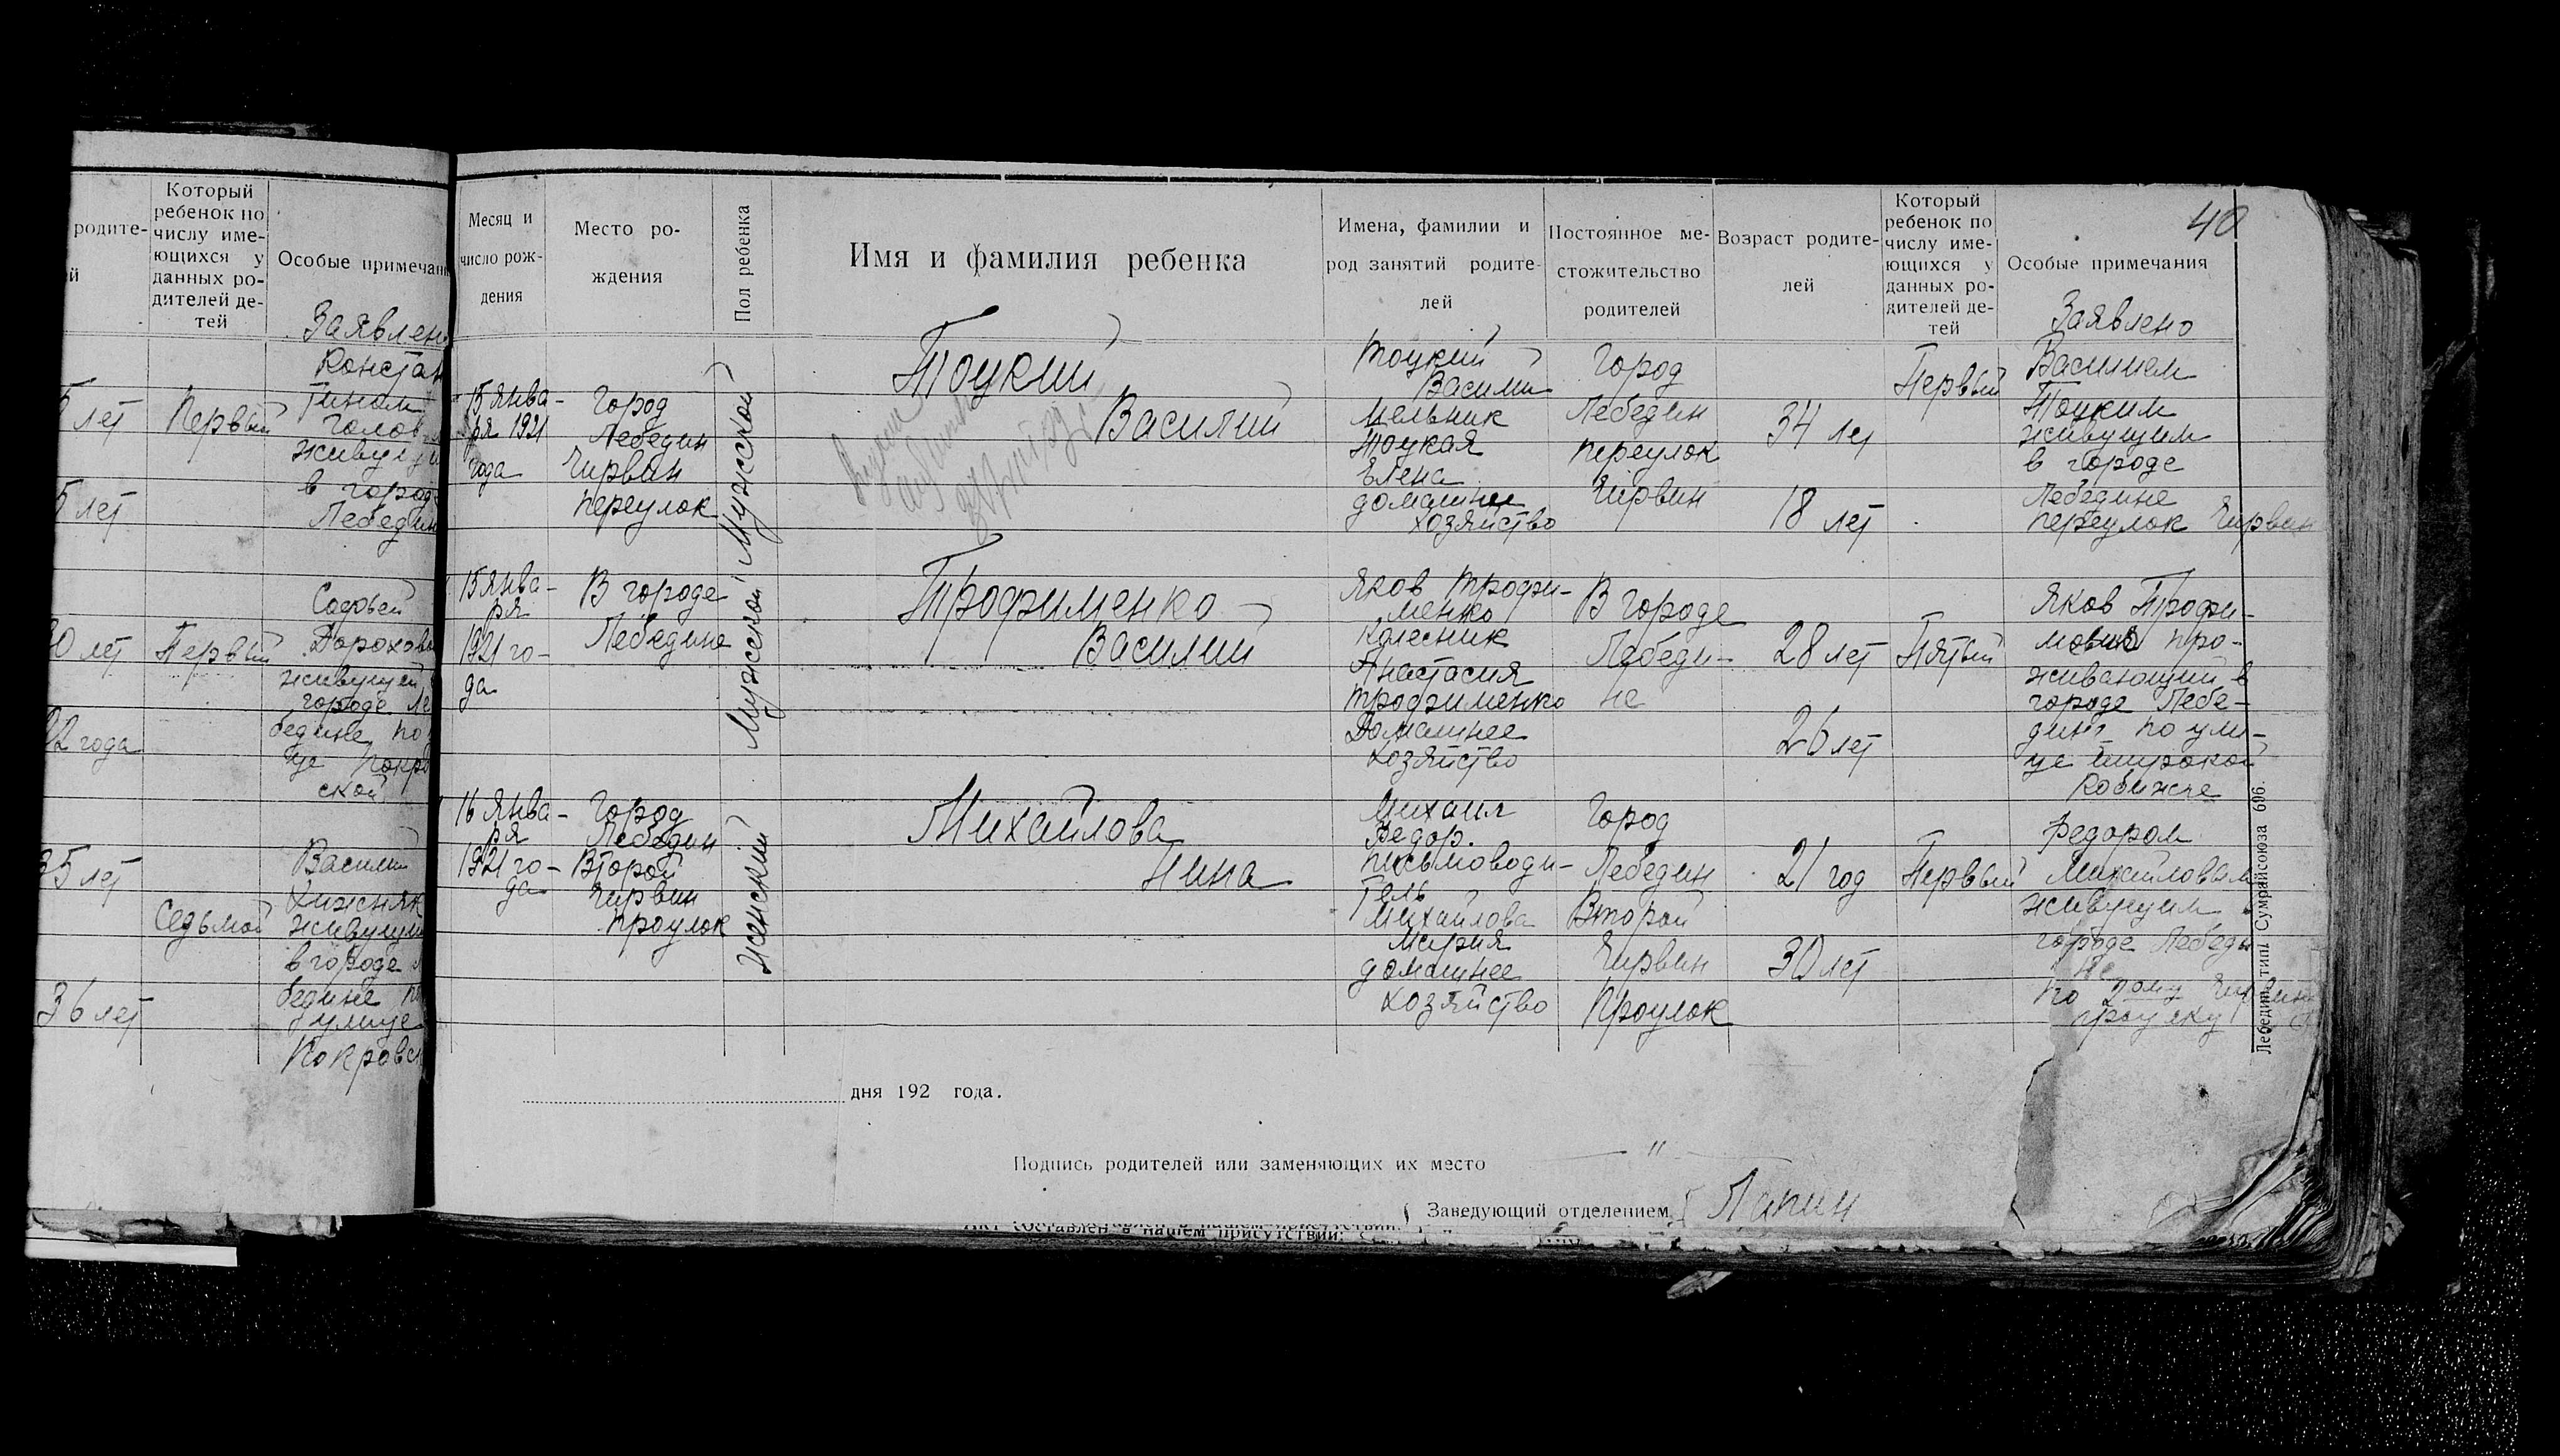 родите-
й
Который
ребенок по
числу име-
ющихся у
данных ро-
дителей де-
тей
Особые примечан
Заявлен
Констан
тином
Голов
живущи
в город
Лебедин
5 лет
Первый
5 лет
Софьей
Дорохово
живущей
городе Ле
бедине по
це Покро
ской
30 лет
Первый
22 года
Василий
Хижняк
живущи
в городе
бедине по
улице
Покровск
35 лет
Седьмой
36 лет
Месяц и
число рож-
дения
Место ро-
ждения
Пол ребенка
Имя и фамилия ребенка
Имена, фамилии и
род занятий родите-
лей
Постоянное ме-
стожительство
родителей
Возраст родите-
лей
Который
ребенок по
числу име-
ющихся у
данных ро-
дителей де-
тей
40
Особые примечания
15 Янва-
ря 1921
года
Город
Лебедин
Чирвин
переулок
Мужской
Тоцкий
Василий
Тоцкий
Василий
Мельник
Тоцкая
Елена
домашнее
хозяйство
Город
Лебедин
переулок
Чирвин
34 лет
18 лет
Первый
Заявлено
Василием
Тоцким
живущим
в городе
Лебедине
переулок Чирвин
15 Янва-
ря
1921 го-
да
В городе
Лебедине
Мужской
Трофименко
Василий
Яков Трофи-
менко
Колесник
Анастасия
Трофименко
Домашнее
хозяйство
В городе
Лебеди-
не
28 лет
26 лет
Пятый
Яков Трофи-
про-
живающий в
городе Лебе-
дине по ули-
це Широкой
Кобижче
16 Янва-
ря
1921 го-
да
Город
Лебедин
Второй
Чирвин
проулок
Женский
Михайлова
Нина
Михаил
Федор.
письмоводи-
тель
Михайлова
Мария
домашнее
хозяйство
Город
Лебедин
Второй
Чирвин
Проулок
21 год
30 лет
Первый
Федором
Михайловым
живущим
городе Лебеди
не
по 2ому
проулку
Лебедин, тип. Сумрайсоюза 696.
дня 192 года.
Подпись родителей или заменяющих их место
"
Заведующий отделением Лапин
составлен в нашем присутствии: